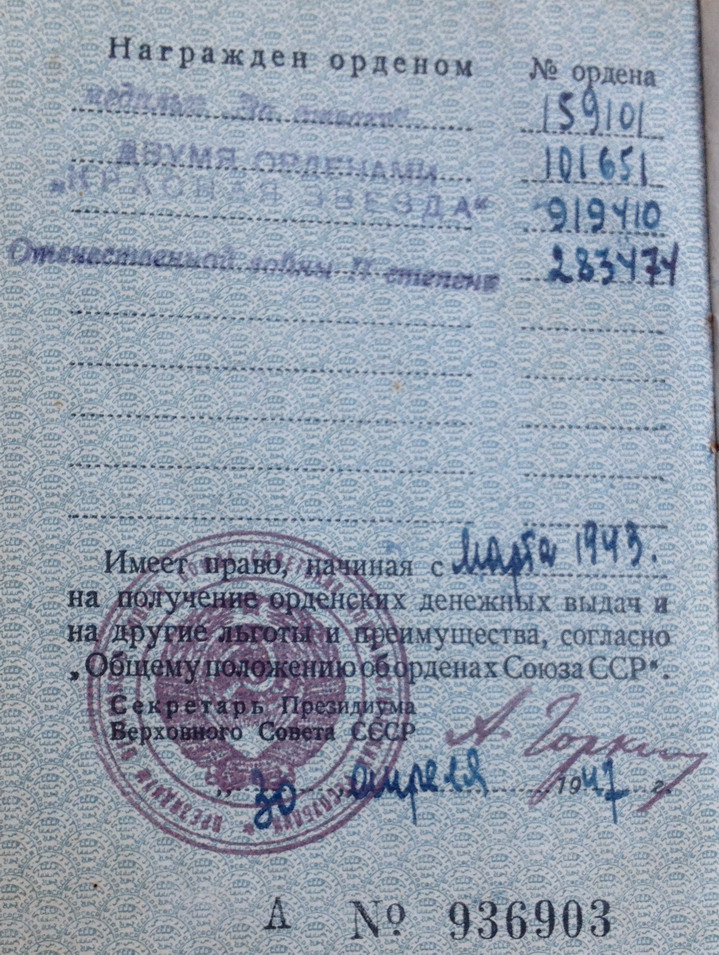 Награжден орденом № ордена
медалью „За отвагу“ 159101
ДВУМЯ ОРДЕНАМИ 101651
„КРАСНАЯ ЗВЕЗДА“ 919410
Отечественной войны II степени 283474
Имеет право, начиная с марта 1943.
на получение орденских денежных выдач и
на другие льготы и преимущества, согласно
„Общему положению об орденах Союза ССР“.
Секретарь Президиума
Верховного Совета СССР А. Горкин
„30 апреля 1947 г.
А № 936903